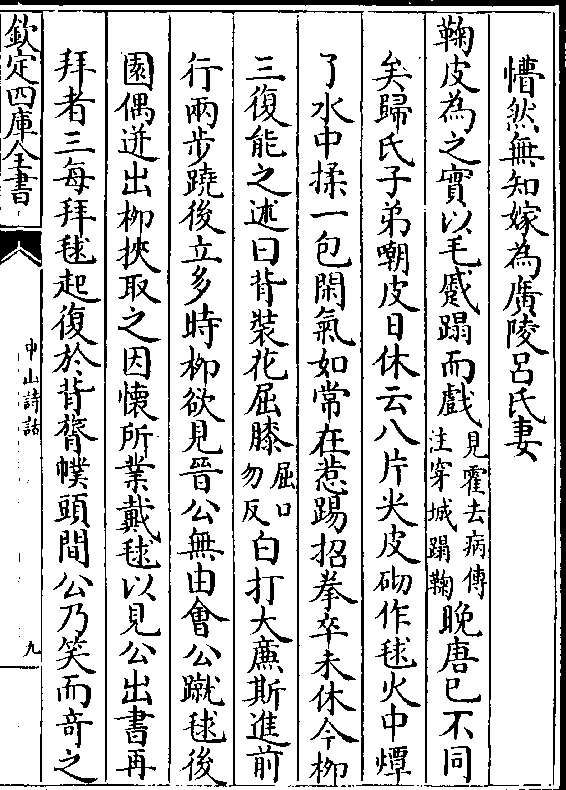 懵然無知嫁為廣陵呂氏妻
鞠皮為之實以毛蹙蹋而戲見霍去病傳注穿城蹋鞠晚唐已不同
矣歸氏子弟嘲皮日休云八片尖皮砌作毬火中燂
了水中揉一包閑氣如常在惹踢招拳卒未休今柳
三復能之述曰背裝花屈膝屈口勿反白打大廉斯進前
行兩步蹺後立多時柳欲見晉公無由會公蹴毬後
園偶迸出柳挾取之因懷所業戴毬以見公出書再
拜者三每拜毬起復於背膂幞頭間公乃笑而奇之
欽定四庫全書
中山詩話
九